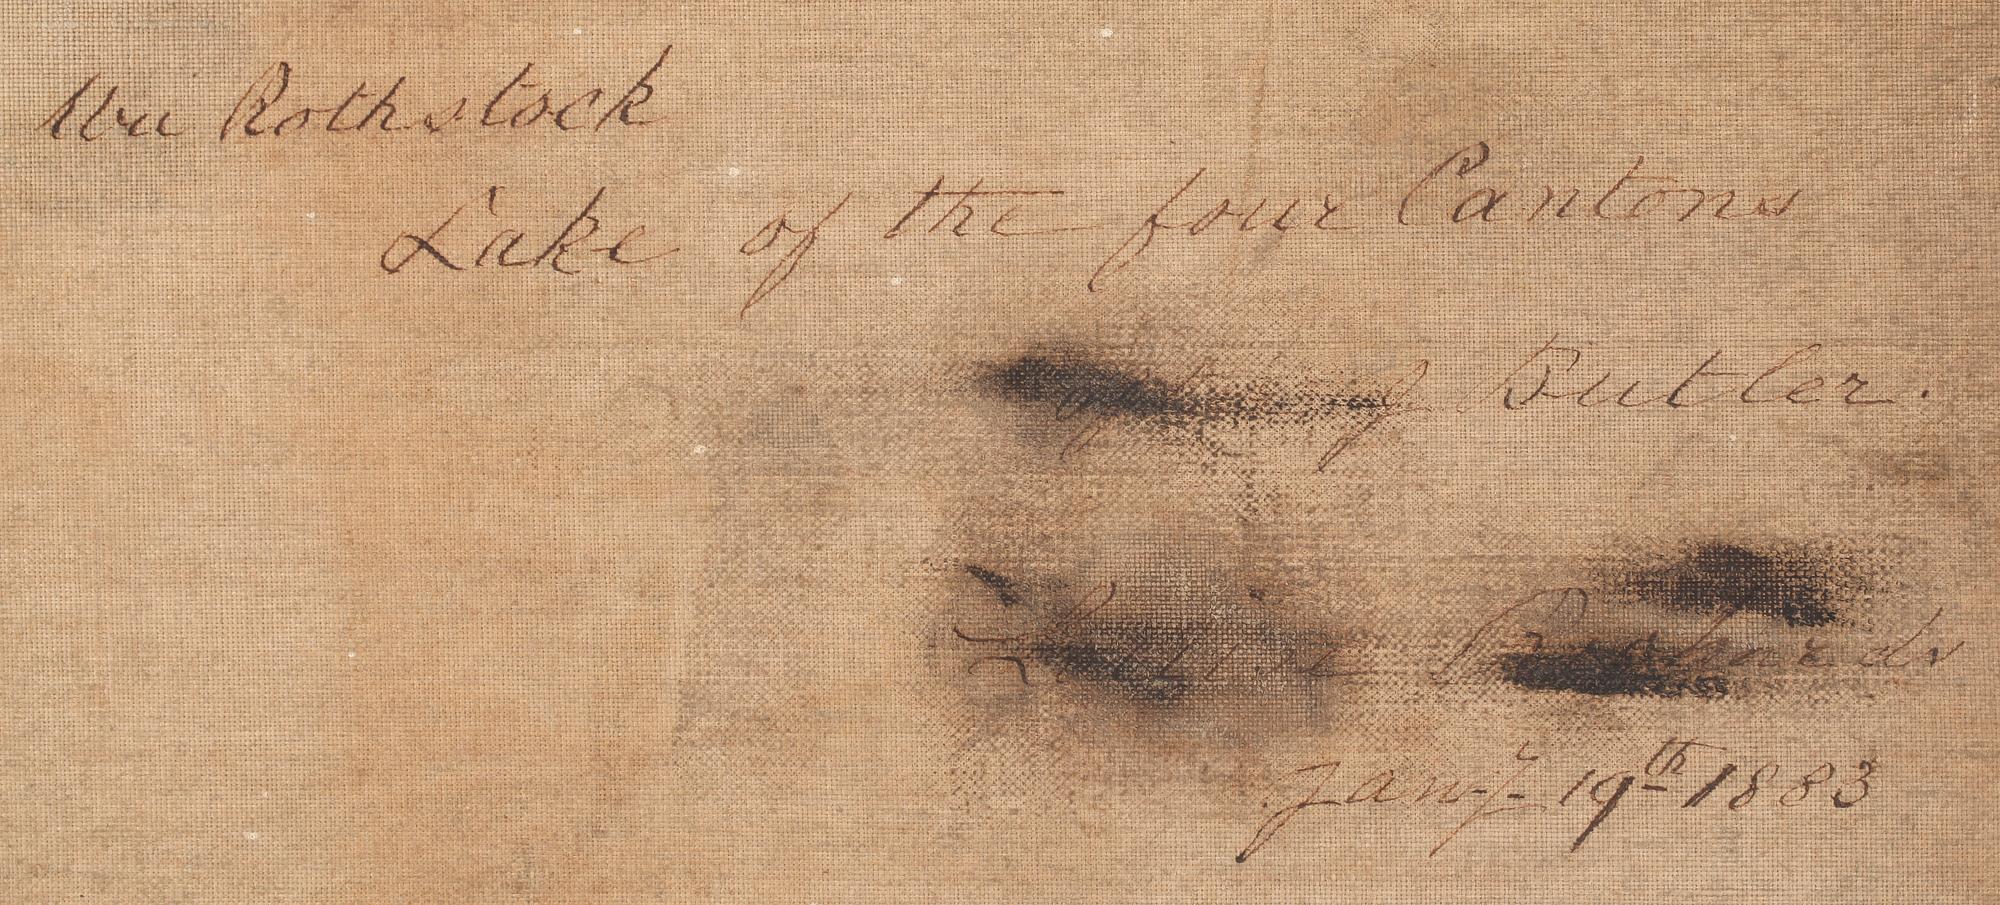 Uri Rothstock
Lake of the four Cantons
Butler.
Richards
Jany. 19th 1883